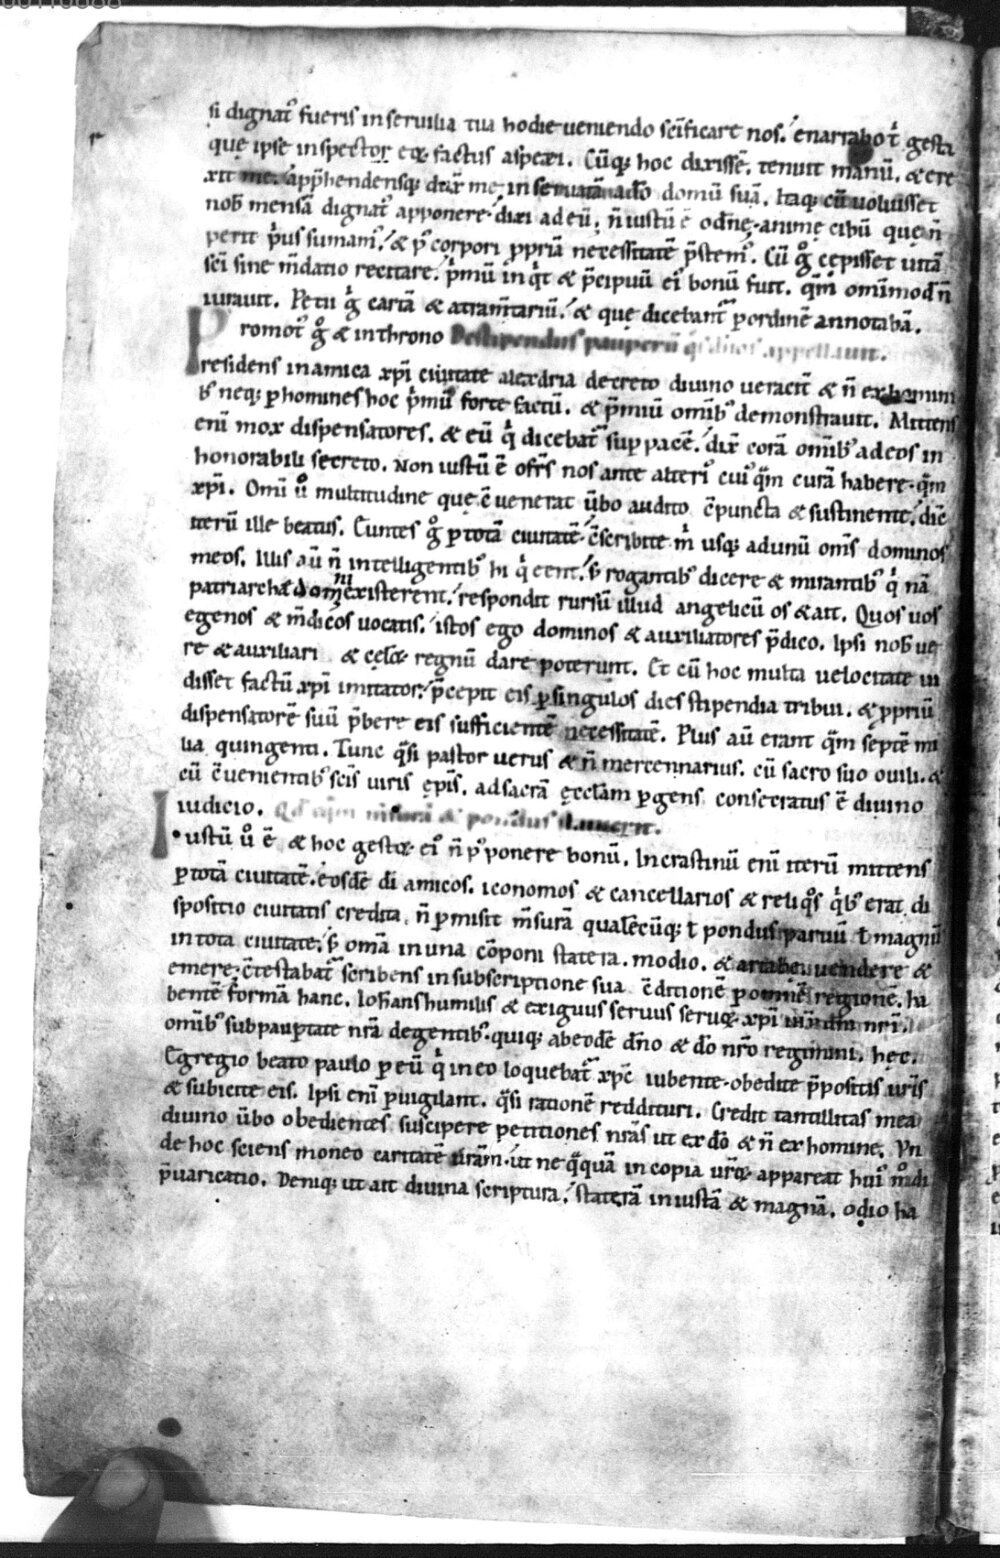 si dignat᷒ fueris in seruilia tua hodie ueniendo scīficare nos. enarrabo t̄ gesta
quę ipse inspector eoꝝ factus aspexi. Cūq; hoc dixissē. tenuit manū. & ere
xit me. app̄hendensq; dux̄ me in domū suā. Itaq; cū uoluisset
nob̄ mensā dignat᷒ apponere. dixi ad eū. n̄ iustū ē od̄nę. animę cibū quē n̄
perit p̄us sumam᷒. & p᷒ corpori ꝓpriā necessitatē p̄stem᷒. Cū g̊ cępisset uitā
sc̄i sine m̄datio recitare. p̄mū inq̇t & p̄cipuū ei᷒ bonū fuit. qm̄ omīmod n̄
iurauit. Petii g̊ cartā & atram̄tariū. & quę dicebant᷒ ꝑ ordinē annotabā.
Promot᷒ g̊ & inthrono De stipendiis pauperū q̇s dn̄os appellauit.
Presidens in amica xp̄i ciuitate alexdria decreto diuino ueracit̄ & n̄ ex homini
b᷒ neq; ꝑ homines hoc p̄mū forte factū. & p̄miū omīb᷒ demonstrauit. Mittens
enī mox dispensatores. & eū q̇ dicebat᷒ sup pacē. dix̄ corā omīb᷒ adeos in
honorabili secreto. Non iustū ē ofr̄s nos ante alteri᷒ cui᷒ q̄m curā habere. q̄m
xp̄i. Omī u̇ multitudine quę ꝯuenerat ūbo audito ꝯpuncta & sustinente. dic̄
iterū ille beatus. Euntes g̊ ꝑ totā ciuitatē. ꝯscribite m̄ usq; ad unū om̄s dominos
meos. Illis aū n̄ intelligentib᷒ hi q̇ eent. s; rogantib᷒ dicere & mirantib᷒ q̇ nā
patriarchę domini existerent. respondit rursū illud angelicū os & ait. Quos uos
egenos & m̄dicos uocatis. istos ego dominos & auxiliatores p̄dico. Ipsi nob̄ ue
re & auxiliari & cęloꝝ regnū dare poterunt. Et cū hoc multa uelocitate iu
disset factū xp̄i imitator. p̄cepit eis ꝑ singulos dies stipendia tribui. & ꝓpriū
dispensatorē suū p̄bere eis sufficientē necessitatē. Plus aū erant q̄m septē mi
lia quingenti. Tunc q̄si pastor uerus & n̄ mercennarius. cū sacro suo ouili. &
cū ꝯuenientib᷒ scīs uiris ep̄is. ad sacrā ęcclām ꝑgens consecratus ē diuino
iudicio. & pondus
Iustū u̇ ē & hoc gestoꝝ ei᷒ n̄ p᷒ponere bonū. In crastinū enī iterū mittens
ꝑ totā ciuitatē. eosdē dī amicos. iconomos & cancellarios & reliq̇s q̇b᷒ erat di
spositio ciuitatis credita. n̄ ꝑmisit m̄surā qualēcūq; ł pondus paruū ł magnū
in tota ciuitate. s; omā in una cōponi statera. modio. & uendere &
emere. ꝯtestabat᷒ scribens in subscriptione sua ꝯditionē ꝑ omnē regionē. ha
bentē formā hanc. Ioh̄ans humilis & exiguus seruus seruoꝝ. xp̄i nr̄i.
omīb᷒ sub pauꝑtate nr̄a degentib᷒. quiq; ab eodē dn̄o & dō nr̄o regimini. hęc.
Egregio beato paulo ꝑ eū q̇ in eo loquebat᷒ xp̄c iubente. obedite p̄positis ur̄is
& subicite eis. Ipsi enī ꝑuigilant. q̄si rationē reddituri. Credit tantillitas mea
diuino ūbo obedientes suscipere petitiones nr̄as ut ex dō & n̄ ex homine. Vn
de hoc sciens moneo caritatē ur̄am. ut ne q̄quā in copia ur̄oꝝ appareat hui᷒ m̊di
p̄uaricatio. Deniq; ut ait diuina scriptura. staterā iniustā & magnā. odio ha